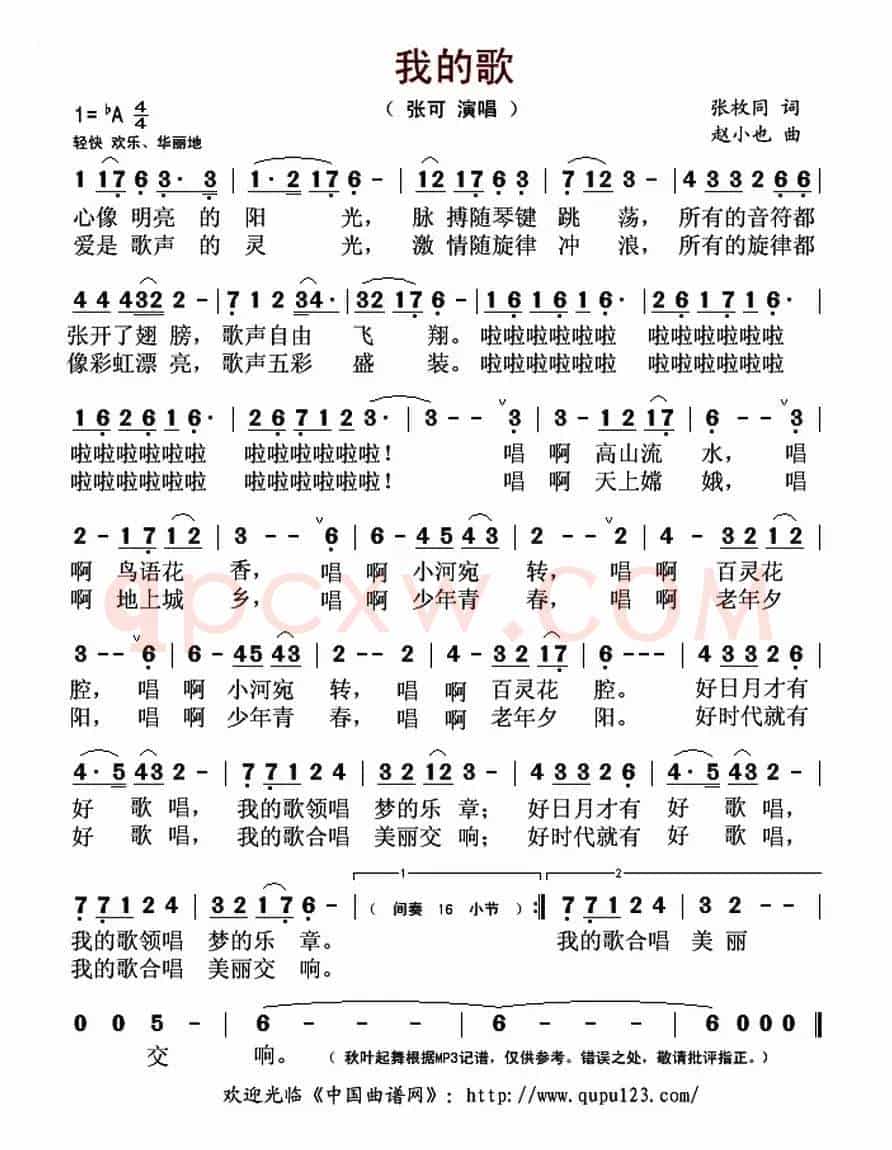 我的歌
1=♭A 4/4
（张可 演唱）
张枚同 词
轻快 欢乐、华丽地
赵小也 曲
1 1 7 6 3· 3 | 1· 2 1 7 6 - | 1 2 1 7 6 3 | 7 1 2 3 - | 4 3 3 3 2 6 6 |
心像 明亮 的 阳 光， 脉 搏随琴键 跳 荡， 所有的音符都
爱是 歌声 的 灵 光， 激 情随旋律 冲 浪， 所有的旋律都
4 4 4 3 2 2 - | 7 1 2 3 4· | 3 2 1 7 6 - | 1 6 1 6 1 6· | 2 6 1 7 1 6· |
张开了翅 膀， 歌声自由 飞 翔。 啦啦啦啦啦啦 啦啦啦啦啦啦
像彩虹漂 亮， 歌声五彩 盛 装。 啦啦啦啦啦啦 啦啦啦啦啦啦
1 6 2 6 1 6· | 2 6 7 1 2 3· | 3 - - ∨ 3 | 3 - 1 2 1 7 | 6 - - ∨ 3 |
啦啦啦啦啦啦 啦啦啦啦啦啦！ 唱 啊 高山流 水， 唱
啦啦啦啦啦啦 啦啦啦啦啦啦！ 唱 啊 天上嫦 娥， 唱
2 - 1 7 1 2 | 3 - - ∨ 6 | 6 - 4 5 4 3 | 2 - - ∨ 2 | 4 - 3 2 1 2 |
啊 鸟语花 香， 唱 啊 小河宛 转， 唱 啊 百灵花
啊 地上城 乡， 唱 啊 少年青 春， 唱 啊 老年夕
qpcxw.COM
3 - - ∨ 6 | 6 - 4 5 4 3 | 2 - - 2 | 4 - 3 2 1 7 | 6 - - - | 4 3 3 2 6 |
腔， 唱 啊 小河宛 转， 唱 啊 百灵花 腔。 好日月才有
阳， 唱 啊 少年青 春， 唱 啊 老年夕 阳。 好时代就有
4· 5 4 3 2 - | 7 7 1 2 4 | 3 2 1 2 3 - | 4 3 3 2 6 | 4· 5 4 3 2 - |
好 歌 唱， 我的歌领唱 梦的乐 章； 好日月才有 好 歌 唱，
好 歌 唱， 我的歌合唱 美丽交 响； 好时代就有 好 歌 唱，
1 2
7 7 1 2 4 | 3 2 1 7 6 - | （ 间奏 16 小节 ） :‖ 7 7 1 2 4 | 3 2 - - |
我的歌领唱 梦的乐 章。 我的歌合唱 美 丽
我的歌合唱 美丽交 响。
0 0 5 - | 6 - - - | 6 - - - | 6 0 0 0 ‖
交 响。 （ 秋叶起舞根据MP3记谱，仅供参考。错误之处，敬请批评指正。）
欢迎光临《中国曲谱网》：http://www.qupu123.com/